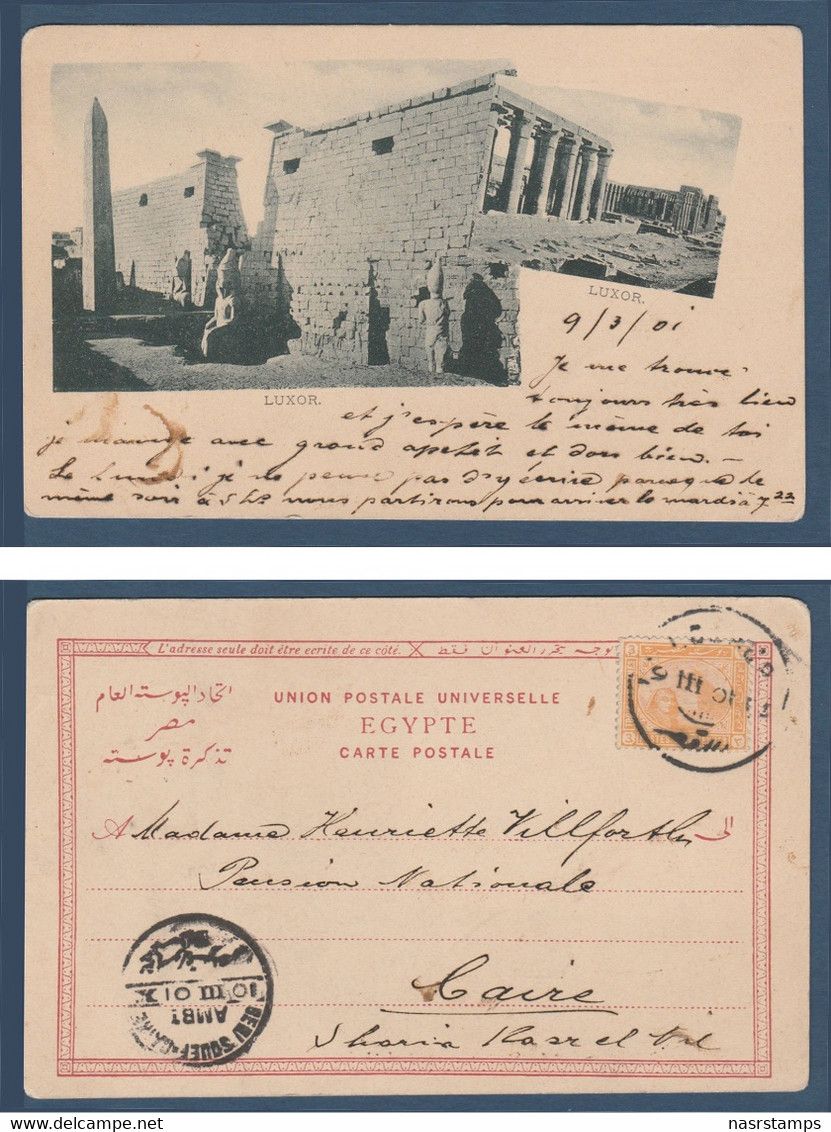 LUXOR.
LUXOR.
9/3/01
Je me trouve
toujours très bien
et j'espère le même de toi
je mange avec grand apetit et dors bien. –
Le lundi je ne peux pas d'y écrire parceque de
même soir à 5 hs nous partirons pour arriver le mardi à 7 22
L'adresse seule doit être ecrite de ce côté.
وجه يحرر العنوان فقط
اتحاد البوسته العام
مصر
تذكرة بوسته
UNION POSTALE UNIVERSELLE
EGYPTE
CARTE POSTALE
3
3
10 III 01
A Madame Henriette Villforth الى
Pension Nationale
Caire
Sharia Kasr el Nil
10 III 01
AMBT
BENI SOUEF-CAIRE
delcampe.net
nasrstamps